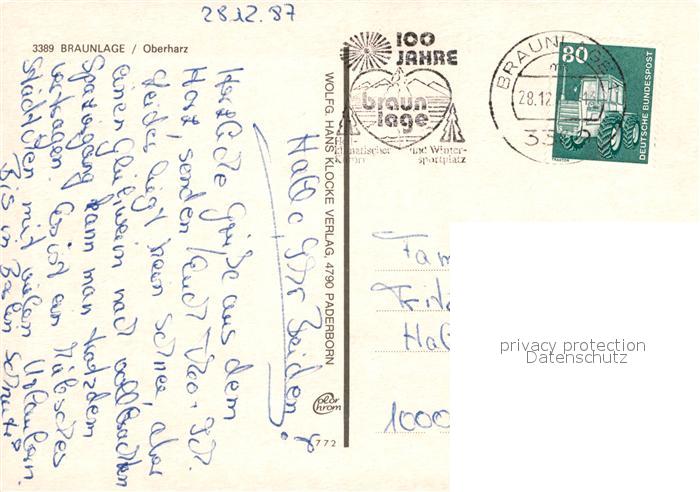 28.12.87
3389 BRAUNLAGE / Oberharz
Hallo, Ihr Beiden!
Herzliche Grüße aus dem
Harz, senden Euch
Leider liegt kein Schnee, aber
einen Glühwein nach vollbrachten
Spaziergang kann man trotzdem
vertragen. Es ist ein hübsches
Städtchen mit vielen Urlaubern.
Bis in Berlin
WOLFG. HANS KLOCKE VERLAG, 4790 PADERBORN
Color
chrom
772
100
JAHRE
braun
lage
Heil-
klimatischer und Winter-
Kurort sportplatz
BRAUNLAGE
28.12
33
80
DEUTSCHE BUNDESPOST
TRAKTOR
Fam
Fritz
Hal
1000
privacy protection
Datenschutz